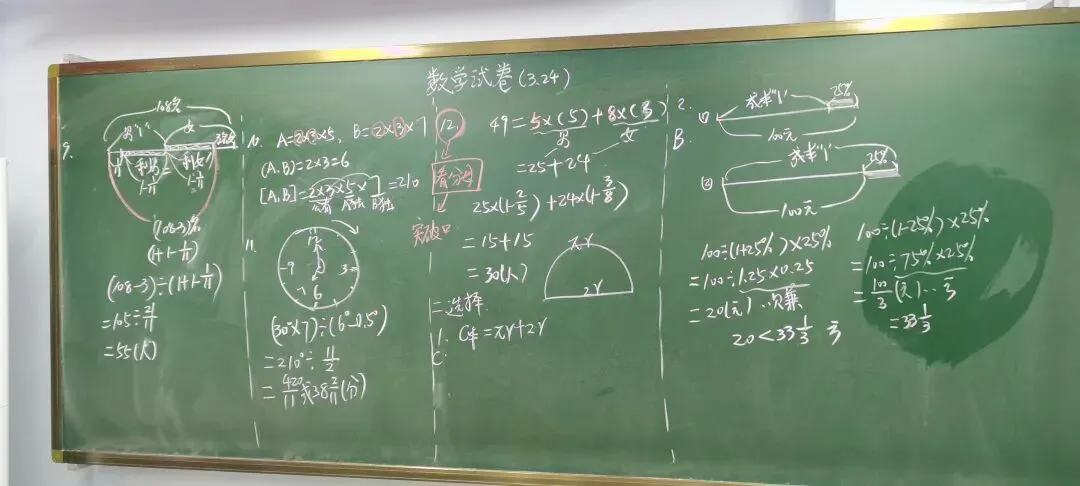 数学试卷(3.24)
108名
9.
男"1"
女
3名
1/11
剩男
=
剩女
1-1/11
1-1/11
(108-3)名
(1+1-1/11)
(108-3)÷(1+1-1/11)
=105÷21/11
=55(人)
10. A=2×3×5, B=2×3×7
(A,B)=2×3=6
[A,B]=2×3×5×7=210
公有 A独 B独
11.
12
9
3
7
6
(30°×7)÷(6°-0.5°)
=210°÷11/2
=420/11或38 2/11(分)
12.
看分母
突破口
49=5×(5)+8×(3)
男 女
=25+24
25×(1-2/5)+24×(1-3/8)
=15+15
=30(人)
πr
2r
二选择
1. C半=πr+2r
C
2.
B.
① 成本"1"
25%
100元
② 成本"1"
25%
100元
100÷(1+25%)×25%
=100÷1.25×0.25
=20(元)
20<33 1/3 亏
100÷(1-25%)×25%
=100÷75%×25%
=100/3(元)…亏
=33 1/3